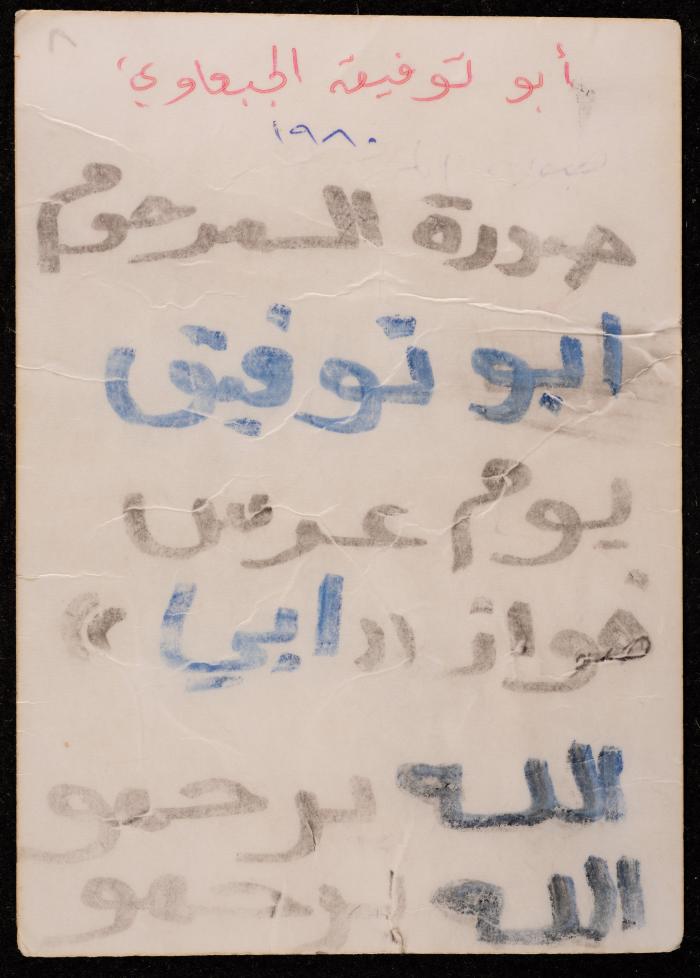 ٨
أبو توفيق الجبعاوي
١٩٨٠
صورة المرحوم
ابو توفيق
يوم عرس
فواز ((ابي))
الله يرحمو
الله يرحمو